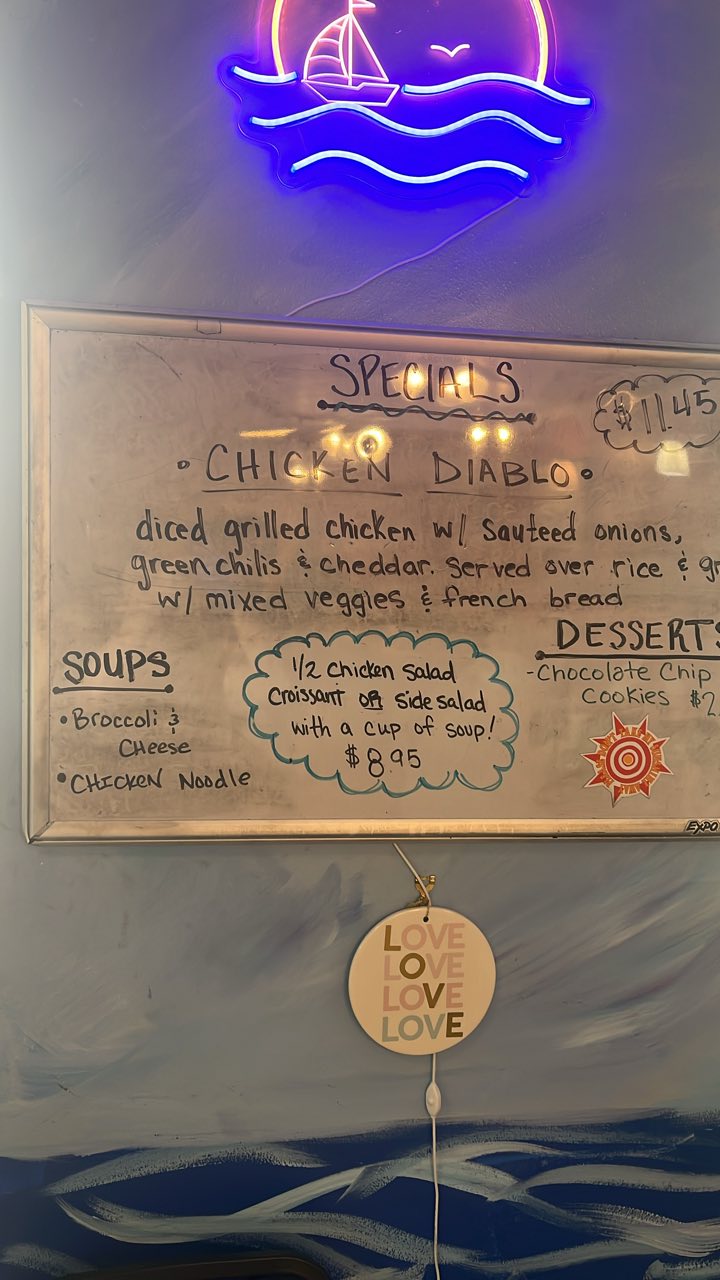 SPECIALS
$11.45
• CHICKEN DIABLO •
diced grilled chicken w/ sauteed onions,
green chilis & cheddar. Served over rice &
w/ mixed veggies & french bread
SOUPS
• Broccoli &
Cheese
• CHICKEN Noodle
1/2 Chicken Salad
Croissant OR side salad
with a cup of soup!
$8.95
DESSERTS
-Chocolate Chip
Cookies
EXPO
LOVE
LOVE
LOVE
LOVE